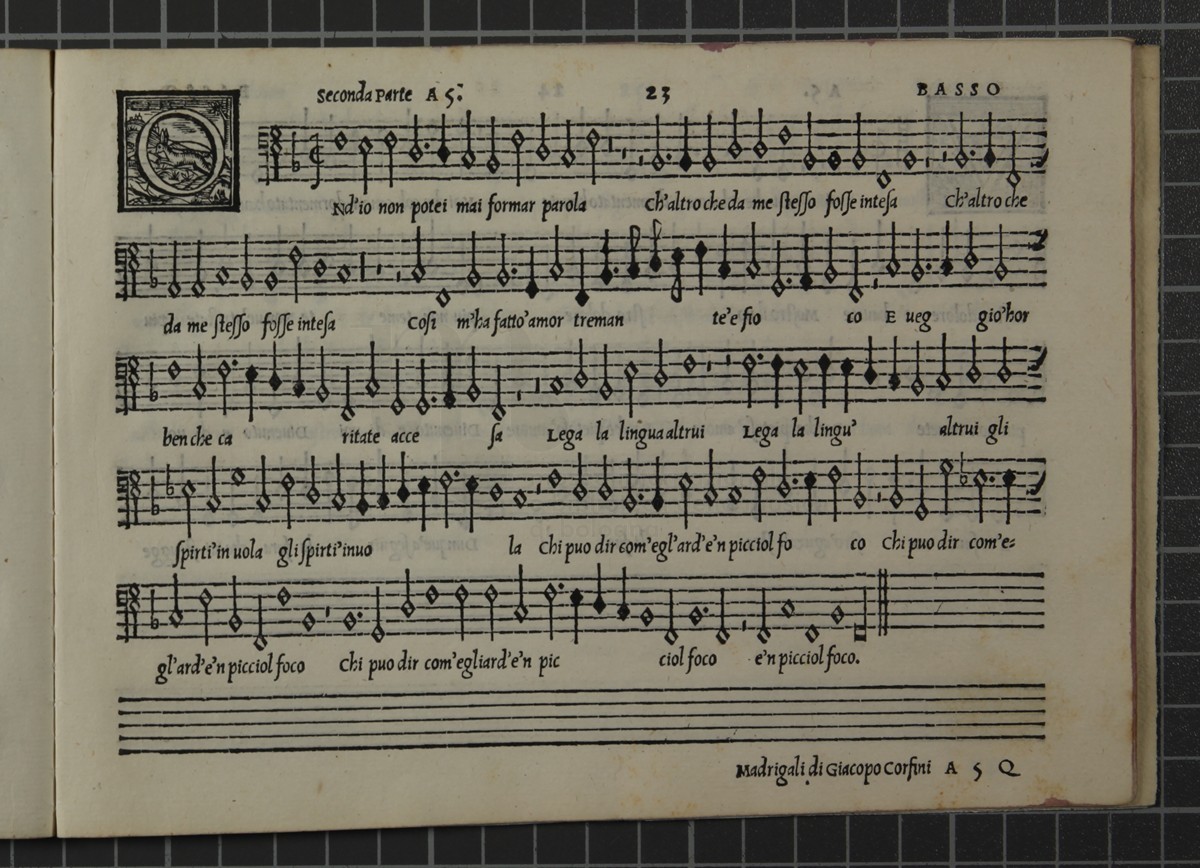 Seconda Parte A 5. 23 BASSO
ONd'io non potei mai formar parola Ch'altro che da me ſteſſo foſſe inteſa Ch'altro che
da me ſteſſo foſſe inteſa Coſi m'ha fatto'amor treman te'e fio co E ueg gio'hor
ben che ca ritate acce ſa Lega la lingua altrui Lega la lingu' altrui gli
ſpirti'in uola gli ſpirti'inuo la Chi puo dir com'egl'ard'e'n picciol fo co Chi puo dir com'e-
gl'ard'e'n picciol foco Chi puo dir com'egliard'e'n pic ciol foco e'n picciol foco.
Madrigali di Giacopo Corfini A 5 Q